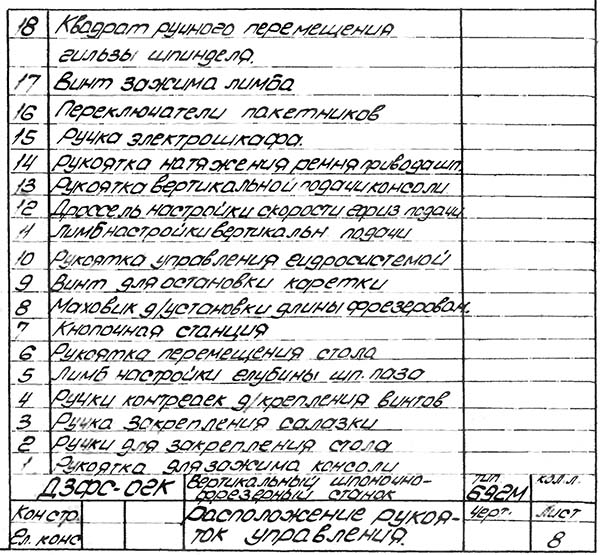 18 Квадрат ручного перемещения
гильзы шпинделя.
17 Винт зажима лимба
16 Переключатели пакетников
15 Ручка электрошкафа.
14 Рукоятка натяжения ремня привода шп.
13 Рукоятка вертикальной подачи консоли
12 Дроссель настройки скорости гориз подачи
11 Лимб настройки вертикальн подачи
10 Рукоятка управления гидросистемой
9 Винт для остановки каретки
8 Маховик д/установки длины фрезерован.
7 Кнопочная станция
6 Рукоятка перемещения стола
5 Лимб настройки глубины шп. паза
4 Ручки контргаек д/крепления винтов
3 Ручка закрепления салазки
2 Ручки для закрепления стола
1 Рукоятка для зажима консоли
ДЗФС-ОГК Вертикальный шпоночно-фрезерный станок тип 692М кол.л.
Констр. Расположение рукоя- Черт. Лист
Гл. конс ток управления. 8